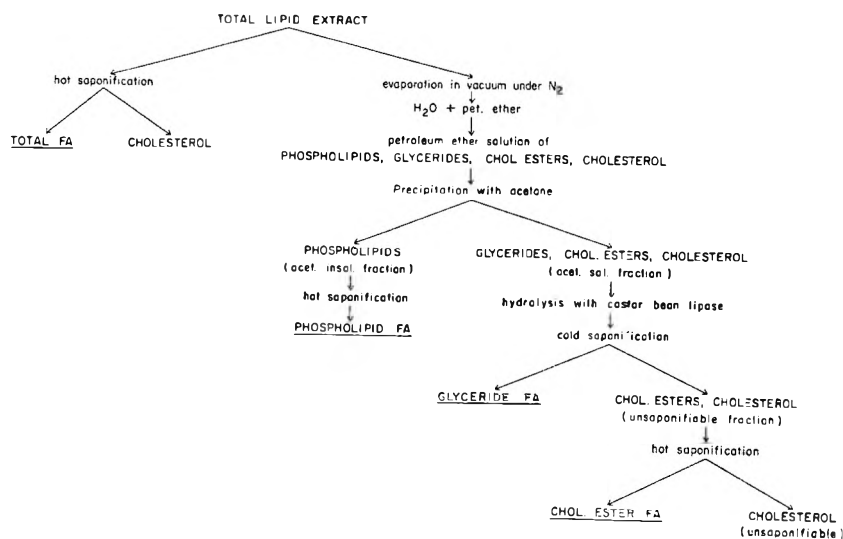 TOTAL LIPID EXTRACT
hot saponification
TOTAL FA
CHOLESTEROL
evaporation in vacuum under N2
H2O + pet. ether
petroleum ether solution of
PHOSPHOLIPIDS, GLYCERIDES, CHOL ESTERS, CHOLESTEROL
Precipitation with acetone
PHOSPHOLIPIDS
(acet. insol. fraction)
hot saponification
PHOSPHOLIPID FA
GLYCERIDES, CHOL. ESTERS, CHOLESTEROL
(acet. sol. fraction)
hydrolysis with castor bean lipase
cold saponification
GLYCERIDE FA
CHOL. ESTERS, CHOLESTEROL
(unsaponifiable fraction)
hot saponification
CHOL. ESTER FA
CHOLESTEROL
(unsaponifiable)